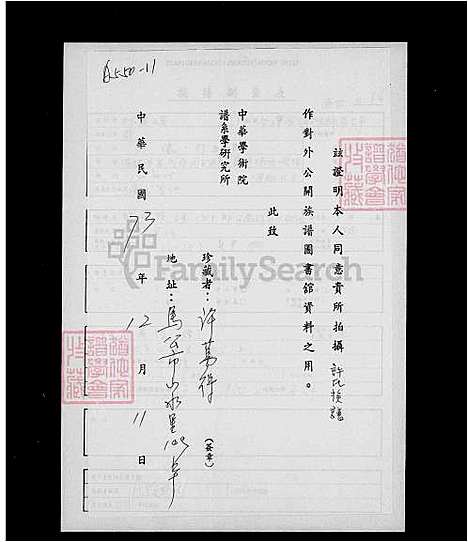 A550-11
茲證明本人同意貴所拍攝許氏族譜
作對外公開族譜圖書舘資料之用。
此致
中華學術院
譜系學研究所
珍藏者：許萬得
(簽章)
地址：馬公市山水里
中華民國73年12月11日
FamilySearch